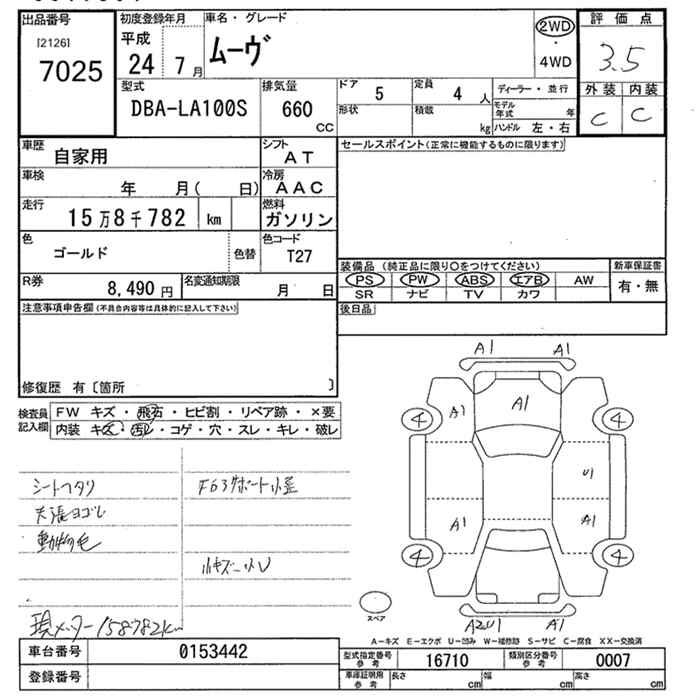 出品番号
[2126]
7025
初度登録年月
平成
24 7 月
車名・グレード
ムーヴ
2WD
・
4WD
評価点
3.5
外装 内装
C C
型式
DBA-LA100S
排気量
660
CC
ドア 5
定員 4 人
形状
積載 kg
ディーラー・並行
モデル年式 年
ハンドル 左・右
車歴
自家用
シフト
AT
セールスポイント(正常に機能するものに限ります)
車検
年 月( 日)
冷房
AAC
走行
15万8千782 km
燃料
ガソリン
色
ゴールド
色替
色コード
T27
装備品 (純正品に限り○をつけてください)
新車保証書
PS PW ABS エアB AW
SR ナビ TV カワ
有・無
R券
8,490 円
名変通知期限
月 日
注意事項申告欄(不具合内容等は具体的に記入して下さい)
後日品
修復歴 有〔箇所 〕
検査員記入欄
FW キズ・飛石・ヒビ割・リペア跡・×要
内装 キズ・汚レ・コゲ・穴・スレ・キレ・破レ
シートヘタリ
天張ヨゴレ
動物毛
小キズ・小U
現メーター158782km
A1 A1
4 A1 A1 4
U1
A1 A1
4 4
スペア
A2U1 A1
A-キズ E-エクボ U-凹み W-補修跡 S-サビ C-腐食 XX-交換済
車台番号 0153442
型式指定番号参考 16710
類別区分番号参考 0007
登録番号
車庫証明用参考
長さ cm
幅 cm
高さ cm